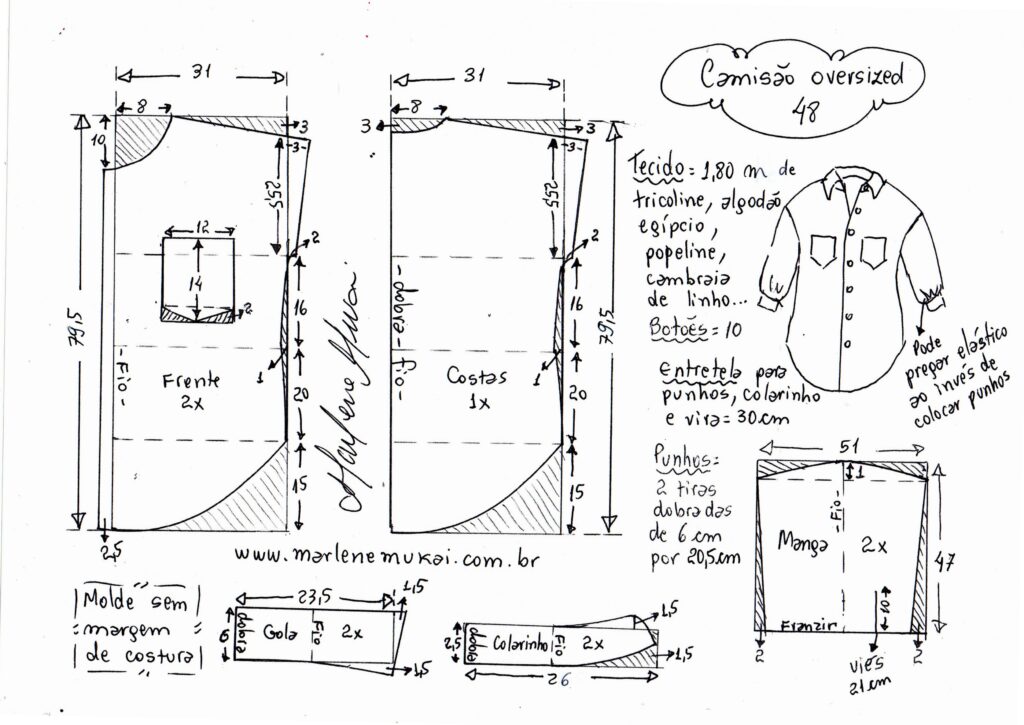 Camisão oversized
48
31
8
10
3
3
25,5
2
12
14
2
16
79,5
-Fio-
1
Frente
2x
20
15
2,5
Marlene Mukai
31
8
3
3
3
25,5
2
-dobra-fio-
16
79,5
1
Costas
1x
20
15
www.marlenemukai.com.br
Tecido = 1,80 m de
tricoline, algodão
egípcio,
popeline,
cambraia
de linho...
Botões = 10
Entretela para
punhos, colarinho
e vira = 30 cm
Punhos =
2 tiras
dobradas
de 6 cm
por 20,5 cm
Pode
pregar elástico
ao invés de
colocar punhos
51
1
-Fio-
Manga 2x
47
10
Franzir
2
2
viés
21 cm
Molde sem
margem
de costura
23,5
1,5
6
dobra
Gola
Fio
2x
1,5
1,5
2,5
dobra
Colarinho
Fio
2x
1,5
26